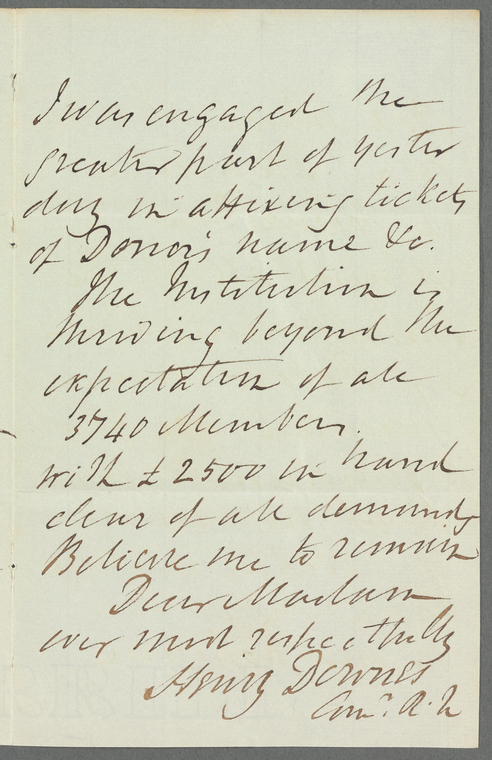 I was engaged the
greater part of yester
day in affixing tickets
of Donor's name &c.
The Institution is
thriving beyond the
expectation of all
3740 Members.
with £2500 in hand
clear of all demands
Believe me to remain
Dear Madam
ever most respectfully
Henry Downes
Comr. R. N